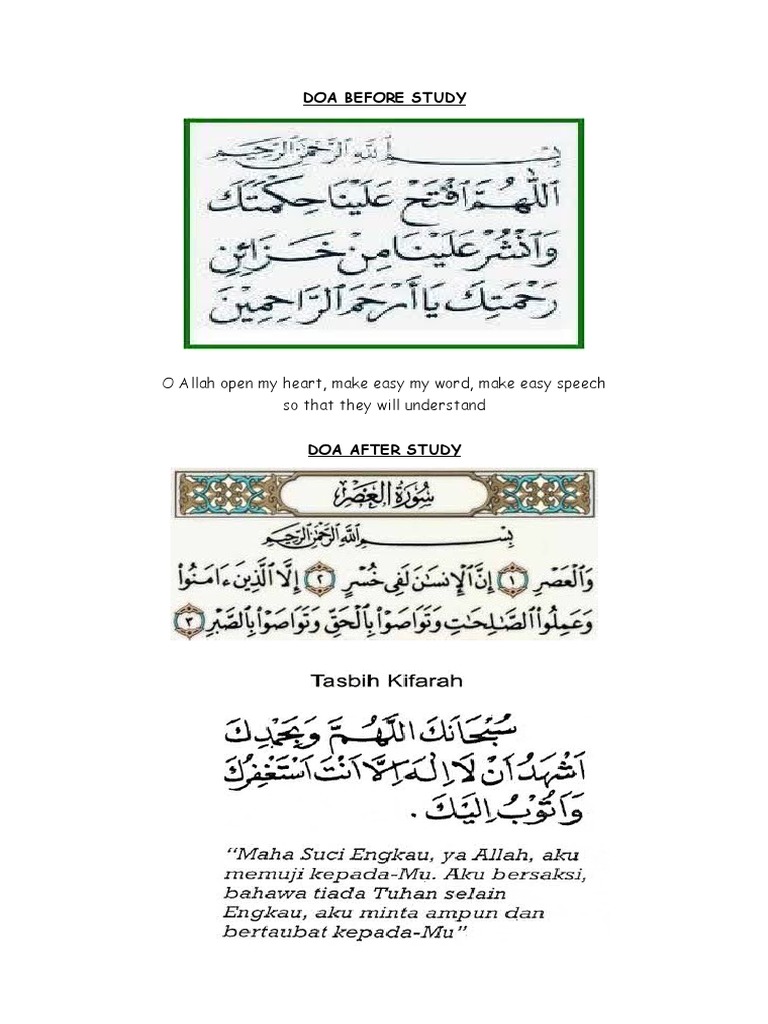 DOA BEFORE STUDY
بِسْمِ اللَّهِ الرَّحْمَٰنِ الرَّحِيمِ
اَللّٰهُمَّ افْتَحْ عَلَيْنَا حِكْمَتَكَ
وَانْشُرْ عَلَيْنَا مِنْ خَزَائِنِ
رَحْمَتِكَ يَا أَرْحَمَ الرَّاحِمِيْنَ
O Allah open my heart, make easy my word, make easy speech
so that they will understand
DOA AFTER STUDY
سُورَةُ الْعَصْرِ
بِسْمِ اللَّهِ الرَّحْمَٰنِ الرَّحِيمِ
وَالْعَصْرِ ١ إِنَّ الْإِنسَٰنَ لَفِى خُسْرٍ ٢ إِلَّا الَّذِينَ ءَامَنُوا
وَعَمِلُوا الصَّٰلِحَٰتِ وَتَوَاصَوْا بِالْحَقِّ وَتَوَاصَوْا بِالصَّبْرِ ٣
Tasbih Kifarah
سُبْحَانَكَ اللَّهُمَّ وَبِحَمْدِكَ
اَشْهَدُ اَنْ لَا اِلٰهَ اِلَّا اَنْتَ اَسْتَغْفِرُكَ
وَاَتُوْبُ اِلَيْكَ .
“Maha Suci Engkau, ya Allah, aku
memuji kepada-Mu. Aku bersaksi,
bahawa tiada Tuhan selain
Engkau, aku minta ampun dan
bertaubat kepada-Mu”